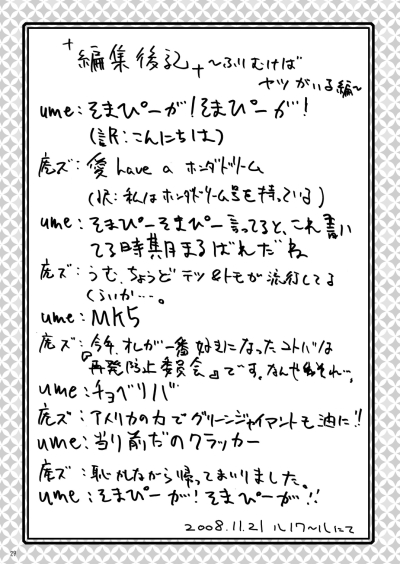 +編集後記+〜ふりむけば
ヤツがいる編〜
ume:そまぴーが!そまぴーが!
(訳:こんにちは)
虎ズ:愛 have a ホンダドリーム
(訳:私はホンダドリーム号を持っている)
ume:そまぴーそまぴー言ってると、これ書い
てる時期まるばれだね
虎ズ:うむ、ちょうどテツ&トモが流行してる
くらいか…。
ume:MK5
虎ズ:今年、オレが一番好きになったコトバは
『再発防止委員会』です。なんやねそれ。
ume:チョベリバ
虎ズ:アメリカの力でグリーンジャイアントも油に!!
ume:当り前だのクラッカー
虎ズ:恥かしながら帰ってまいりました。
ume:そまぴーが!そまぴーが!!
2008.11.21 ルノワールにて
29